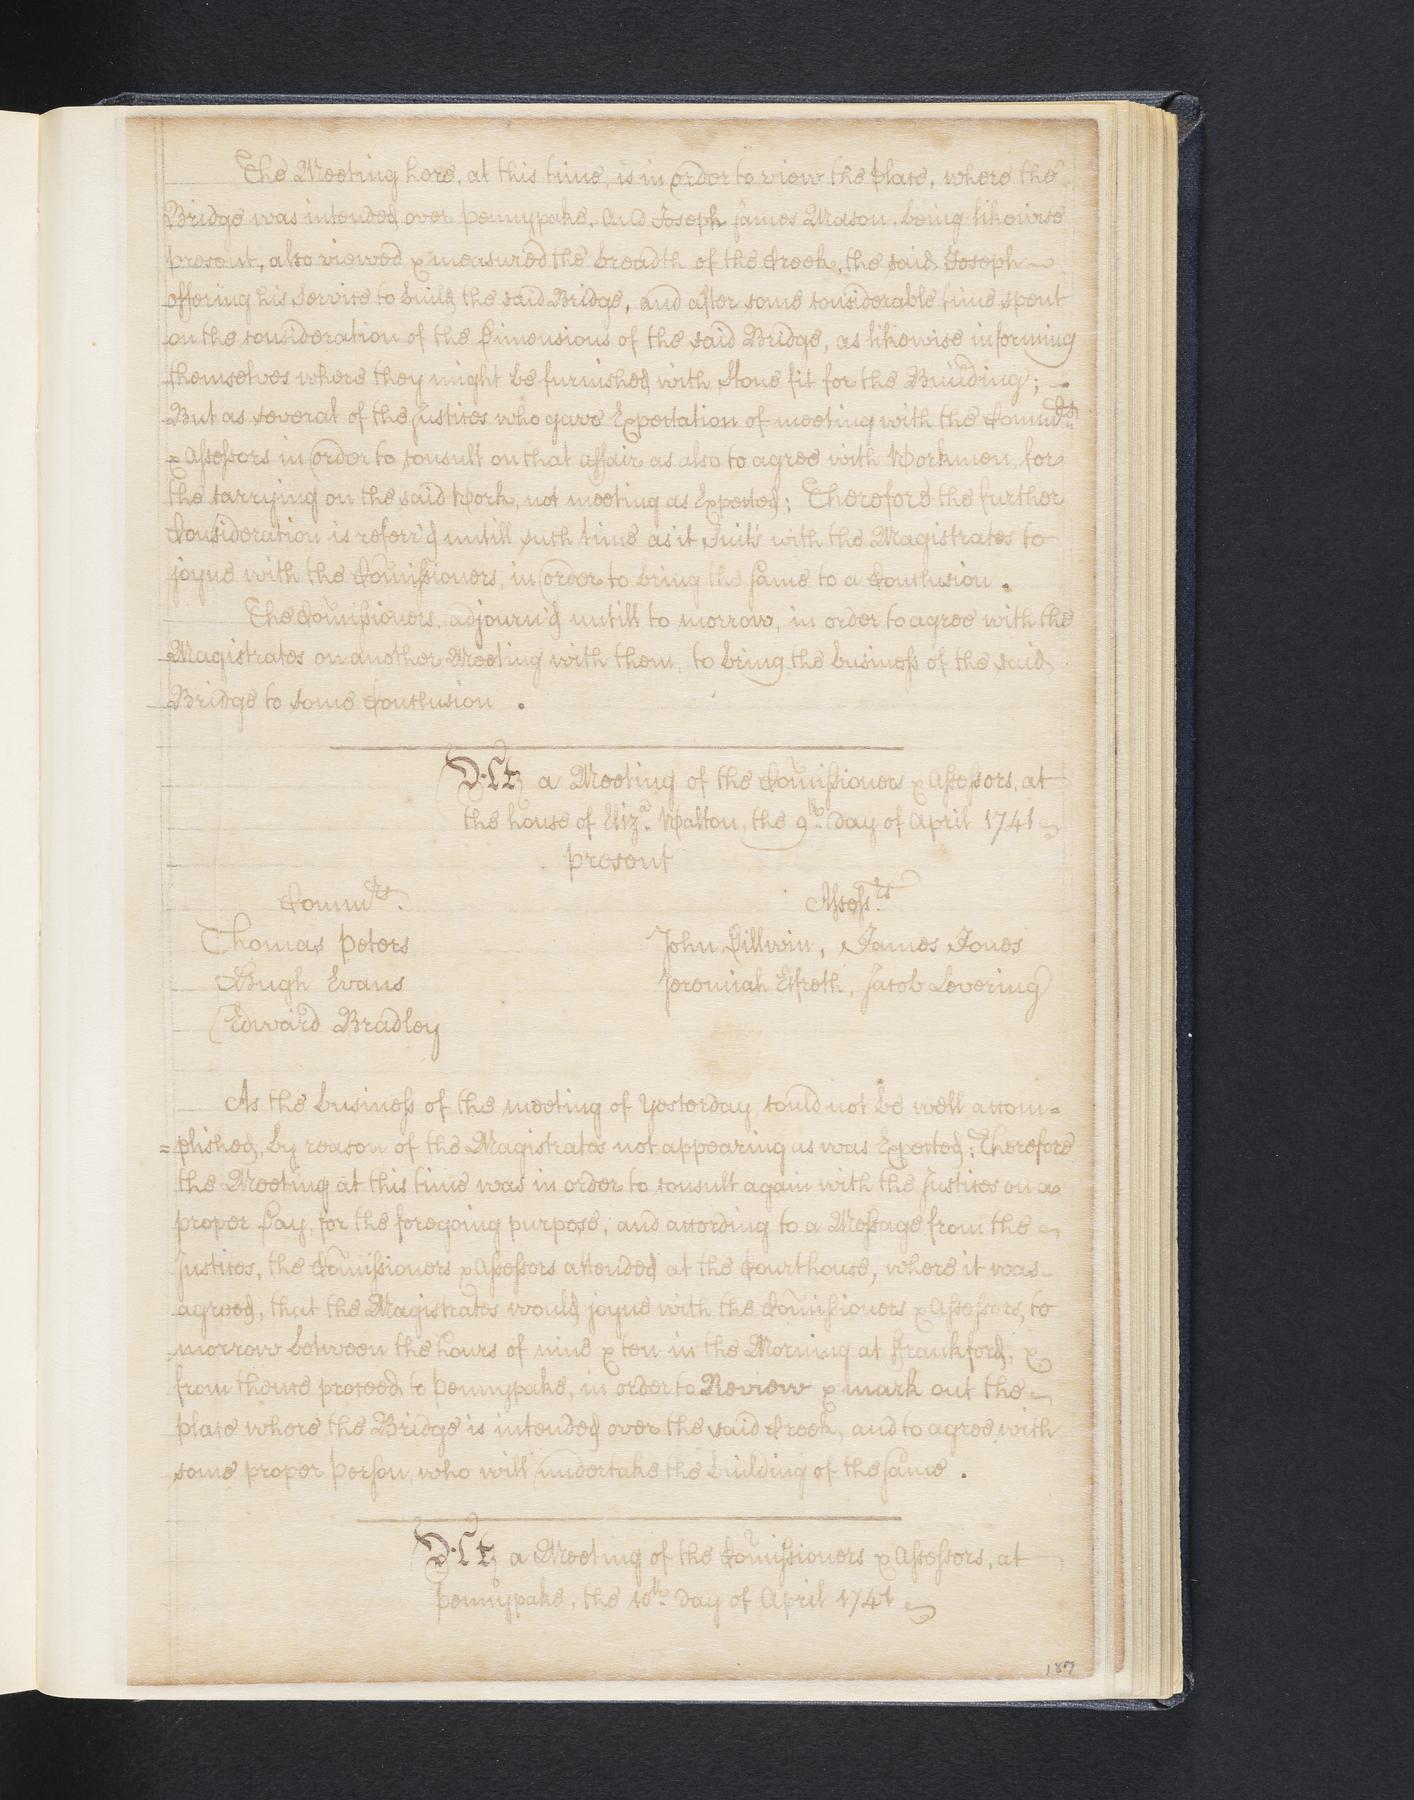 The Meeting here, at this time, is in order to view the place, where the
Bridge was intended over Pennypake. And Joseph James Mason, being likewise
present, also viewed & measured the breadth of the Creek, the said Joseph
offering his Service to build the said Bridge, and after some considerable time spent
on the consideration of the Dimensions of the said Bridge, as likewise informing
themselves where they might be furnished with Stone fit for the Building;
But as several of the Justices who gave Expectation of meeting with the Commrs
& Assessors in order to consult on that affair as also to agree with Workmen, for
the carrying on the said Work, not meeting as Expected; Therefore the further
Consideration is referr'd untill such time as it Suits with the Magistrates to
joyne with the Comissioners, in order to bring the same to a Conclusion.
The Comissioners, adjourn'd untill to morrow, in order to agree with the
Magistrates on another Meeting with them, to bring the business of the said
Bridge to some Conclusion.
At a Meeting of the Comissioners & Assessors, at
the house of Eliza. Walton, the 9th. Day of April 1741
present
Commrs.
Assessrs.
Thomas Peters
John Dillwin, James Jones
Hugh Evans
Jeremiah Elfreth, Jacob Levering
Edward Bradley
As the business of the meeting of Yesterday, could not be well accom=
=plished, by reason of the Magistrates not appearing as was Expected; Therefore
the Meeting at this time was in order to consult again with the Justices on a
proper Day, for the foregoing purpose, and according to a Message from the
Justices, the Comissioners & Assessors attended at the Courthouse, where it was
agreed, that the Magistrates would joyne with the Comissioners & Assessors, to
morrow between the hours of nine & ten in the Morning at Frankford, &
from thence proceed to Pennypake, in order to Review & mark out the
place where the Bridge is intended over the said Creek, and to agree with
some proper Person, who will undertake the building of the same.
At a Meeting of the Comissioners & Assessors, at
Pennypake, the 10th. Day of April 1741
187